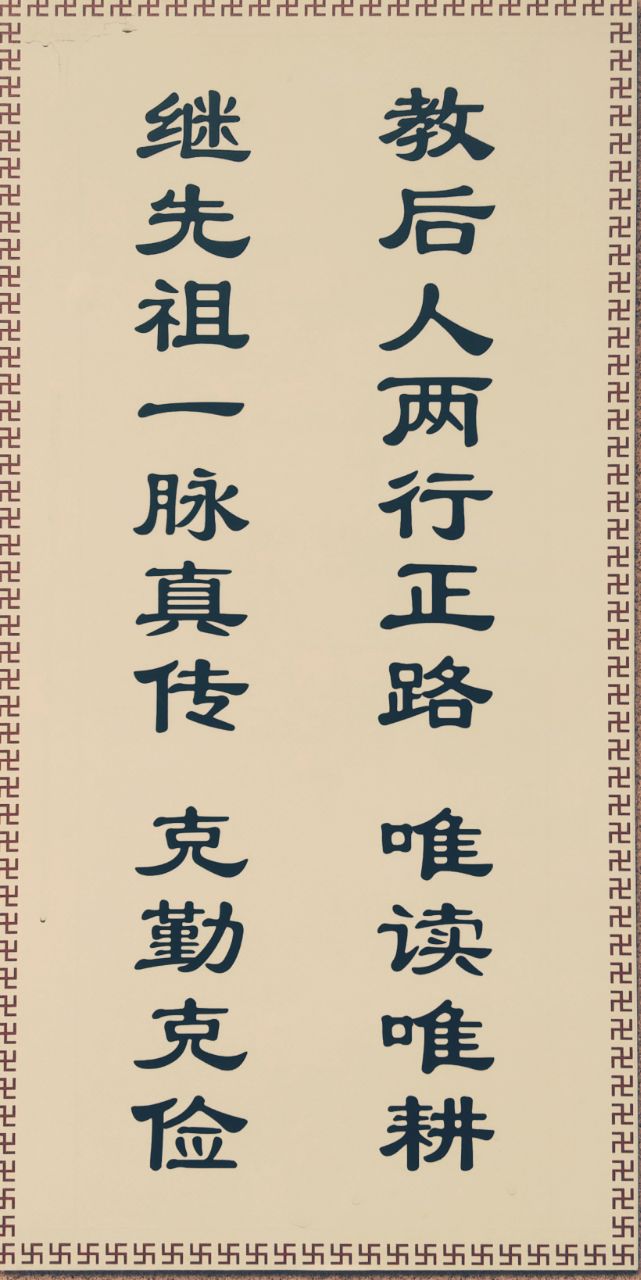 教后人两行正路 唯读唯耕
继先祖一脉真传 克勤克俭